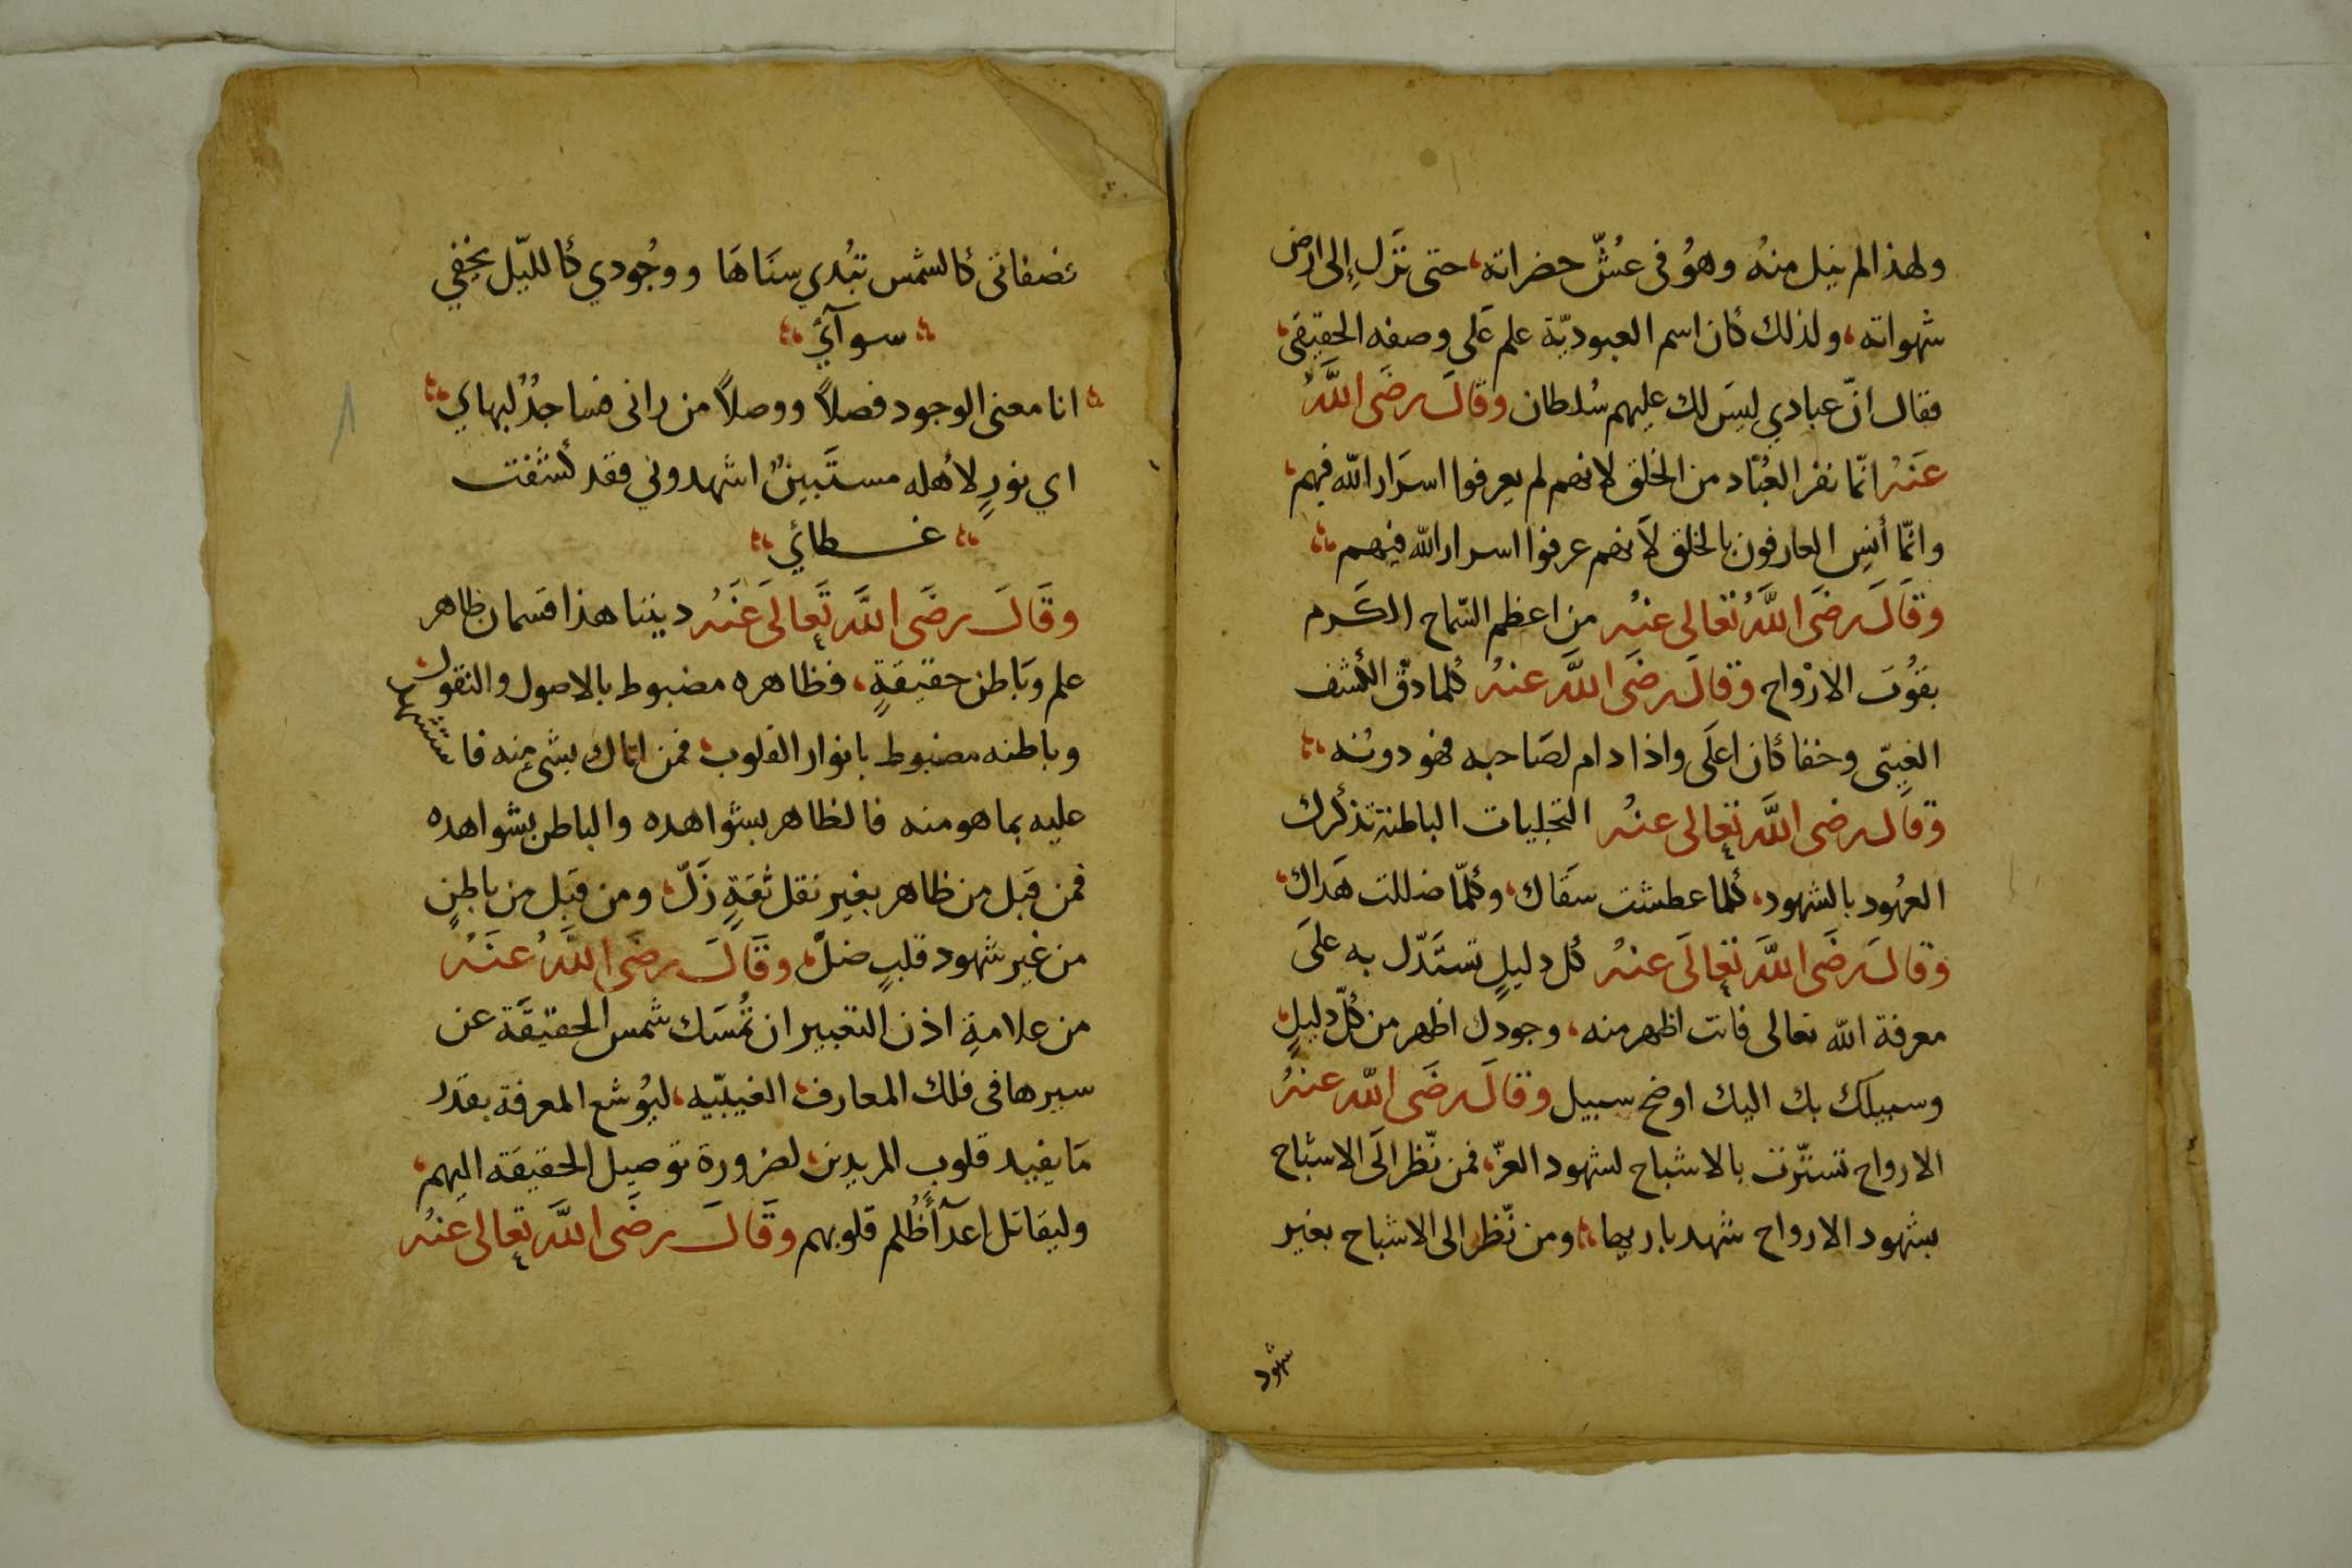 ولهذا لم ينل منهُ وهوُ فى عُشّ حضراته، حتى نزَل إِلى ارض
شهواته، ولذلك كان اسم العبوديّة علم عَلى وصفه الحقيقى،
فقال انّ عبادي ليسَ لك عليهم سُلطان وقالَ رضَى اللَّهُ
عَنهُ انّما نفر العُبّاد من الخلق لانهم لم يعرفوا اسرَار الله فيهم،
وانّما أنِس العارفون بالخلق لاَنهم عرفوا اسرار الله فيهم
وَقَالَ رضَى اللَّهُ تعَالى عنهُ من اعظم السّماح الكَرم
بقوُت الارْواح وَقالَ رضَى اللَّه عنهُ كُلما دقّ الكشف
الغيبّى وخفا كان اعلَى واذا دام لصَاحبه فهو دونُه
وَقال رضى اللَّه تعالى عنهُ التجليات الباطنة تذكرك
العهُود بالشهود، كُلما عطشت سقَاك، وكلّما ضللت هَداك،
وَقالَ رضَى اللَّه تعالَى عنهُ كُل دليلٍ تستَدّل به علىَ
معرفة الله تعالى فانت اظهر منه، وجودك اظهر من كُلّ دليلٍ،
وسبيلك بك اليك اوضح سبيل وقالَ رضَى اللّه عنهُ
الارواح تستّرت بالاشباح لشهود العزّ، فمن نّظر الَى الاشباح
بشهود الارواح شهد باريها، ومن نّظر الى الاشباح بغير
شهود
فصفاتى كالشمس تبُدي سنَاهَا ووجُودي كالليّل يخفي
سوآئي
انا معنى الوجود فصلاً ووصلاً من رانى فساجدٌ لبهاي
اي نورٍ لاهله مستَبينٌ اشهدوني فقد كشفت
غطائي
وَقَالَ رضَى اللَّه تَعالَى عَنهُ ديننا هذا قسمان ظاهر
علم وبَاطن حقيقةٍ، فظاهره مضبوط بالاصول والنقول،
وباطنه مضبوط بانوار القلوب، فمن اتاك بشىء منه فاستشهد
عليه بما هو منه فالظاهر بشواهده والباطن بشواهده
فمن قَبل من ظاهر بغير نقل ثقةٍ زَلّ، ومن قبَل من باطنٍ
من غير شهود قلبٍ ضلّ، وقَالَ رضَى اللَّهُ عنَهُ
من علامةِ اذن التعبير ان تمُسَك شمس الحقيقَة عن
سيرها فى فلك المعارف، الغيبّيه، ليوُشع المعرفة بقدَر
مَا يفيد قلوب المريدين، لضرورة توصيل الحقيقة اليهم،
وليقاتل اعدآ ظُلم قلوبهم وقَالَ رضَى اللَّه تعالى عنهُ